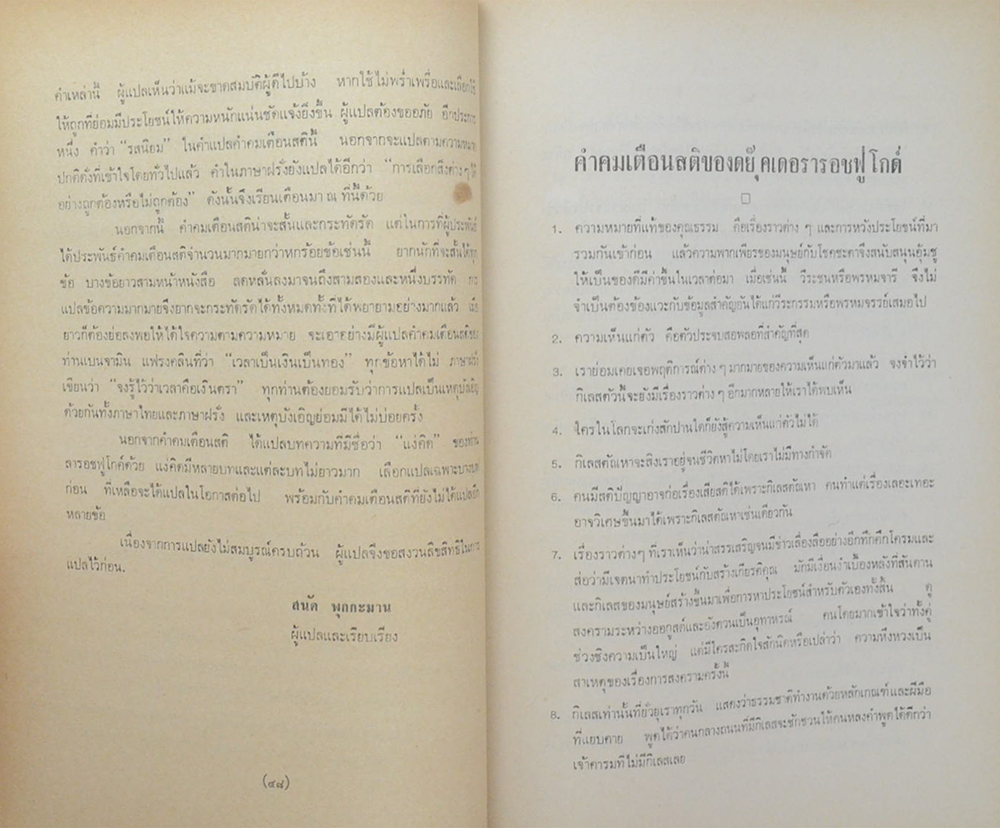 คำเหล่านี้ ผู้แปลเห็นว่าแม้จะขาดสมบัติผู้ดีไปบ้าง หากใช้ไม่พร่ำเพรื่อและเลือกใช้
ให้ถูกที่ย่อมมีประโยชน์ให้ความหนักแน่นชัดแจ้งยิ่งขึ้น ผู้แปลต้องขออภัย อีกประการ
หนึ่ง คำว่า "รสนิยม" ในคำแปลคำคมเตือนสตินี้ นอกจากจะแปลตามความหมาย
ปกติดั่งที่เข้าใจโดยทั่วไปแล้ว คำในภาษาฝรั่งยังแปลได้อีกว่า "การเลือกสิ่งต่างๆ ได้
อย่างถูกต้องหรือไม่ถูกต้อง" ดังนั้นจึงเรียนเตือนมา ณ ที่นี้ด้วย
นอกจากนี้ คำคมเตือนสติน่าจะสั้นและกระทัดรัด แต่ในการที่ผู้ประพันธ์
ได้ประพันธ์คำคมเตือนสติจำนวนมากมายกว่าหกร้อยข้อเช่นนี้ ยากนักที่จะสั้นได้ทุก
ข้อ บางข้อยาวสามหน้าหนังสือ ลดหลั่นลงมาจนถึงสามสองและหนึ่งบรรทัด การ
แปลข้อความมากมายจึงยากจะกระทัดรัดได้ทั้งหมดทั้งที่ได้พยายามอย่างมากแล้ว เมื่อ
ยาวก็ต้องย่อลงพอให้ได้ใจความตามความหมาย จะเอาอย่างมีผู้แปลคำคมเตือนสติของ
ท่านเบนจามิน แฟรงคลินที่ว่า "เวลาเป็นเงินเป็นทอง" ทุกข้อหาได้ไม่ ภาษาฝรั่ง
เขียนว่า "จงรู้ไว้ว่าเวลาคือเงินตรา" ทุกท่านต้องยอมรับว่าการแปลเป็นเหตุบังเอิญ
ด้วยกันทั้งภาษาไทยและภาษาฝรั่ง และเหตุบังเอิญย่อมมีได้ไม่บ่อยครั้ง
นอกจากคำคมเตือนสติ ได้แปลบทความที่มีชื่อว่า "แง่คิด" ของท่าน
ลารอชฟูโกด์ด้วย แง่คิดมีหลายบทและแต่ละบทไม่ยาวมาก เลือกแปลเฉพาะบางบท
ก่อน ที่เหลือจะได้แปลในโอกาสต่อไป พร้อมกับคำคมเตือนสติที่ยังไม่ได้แปลอีก
หลายข้อ
เนื่องจากการแปลยังไม่สมบูรณ์ครบถ้วน ผู้แปลจึงขอสงวนลิขสิทธิ์ในการ
แปลไว้ก่อน.
สนัด พุกกะมาน
ผู้แปลและเรียบเรียง
(๔๘)
คำคมเตือนสติของดยุ๊คเดอรารอชฟูโกด์
1. ความหมายที่แท้ของคุณธรรม คือเรื่องราวต่าง ๆ และการหวังประโยชน์ที่มา
รวมกันเข้าก่อน แล้วความพากเพียรของมนุษย์กับโชคชะตาจึงสนับสนุนอุ้มชู
ให้เป็นของดีมีค่าขึ้นในเวลาต่อมา เมื่อเช่นนี้ วีระชนหรือพรหมจารี จึงไม่
จำเป็นต้องข้องแวะกับข้อมูลสำคัญอันได้แก่วีระกรรมหรือพรหมจรรย์เสมอไป
2. ความเห็นแก่ตัว คือตัวประจบสอพลอที่สำคัญที่สุด
3. เราย่อมเคยเจอพฤติการณ์ต่าง ๆ มากมายของความเห็นแก่ตัวมาแล้ว จงจำไว้ว่า
กิเลสตัวนี้จะยังมีเรื่องราวต่าง ๆ อีกมากหลายให้เราได้พบเห็น
4. ใครในโลกจะเก่งสักปานใดก็ยังสู้ความเห็นแก่ตัวไม่ได้
5. กิเลสตัณหาจะสิงเราอยู่จนชีวิตหาไม่โดยเราไม่มีทางกำจัด
6. คนมีสติปัญญาอาจก่อเรื่องเสียสติได้เพราะกิเลสตัณหา คนทำแต่เรื่องเลอะเทอะ
อาจวิเศษขึ้นมาได้เพราะกิเลสตัณหาเช่นเดียวกัน
7. เรื่องราวต่างๆ ที่เราเห็นว่าน่าสรรเสริญจนมีข่าวเลื่องลืออย่างอึกทึกคึกโครมและ
ส่อว่ามีเจตนาทำประโยชน์กับสร้างเกียรติคุณ มักมีเงื่อนงำเบื้องหลังที่สันดาน
และกิเลสของมนุษย์สร้างขึ้นมาเพื่อการหาประโยชน์สำหรับตัวเองทั้งสิ้น ดู
สงครามระหว่างออกุสต์และอังตวนเป็นอุทาหรณ์ คนโดยมากเข้าใจว่าทั้งคู่
ช่วงชิงความเป็นใหญ่ แต่มีใครสะกิดใจสักนิดหรือเปล่าว่า ความหึงหวงเป็น
สาเหตุของเรื่องการสงครามครั้งนี้
8. กิเลสเท่านั้นที่ยั่วยุเราทุกวัน แสดงว่าธรรมชาติทำงานด้วยหลักเกณฑ์และฝีมือ
ที่แยบคาย พูดได้ว่าคนกลางถนนที่มีกิเลสจะชักชวนให้คนหลงคำพูดได้ดีกว่า
เจ้าคารมที่ไม่มีกิเลสเลย